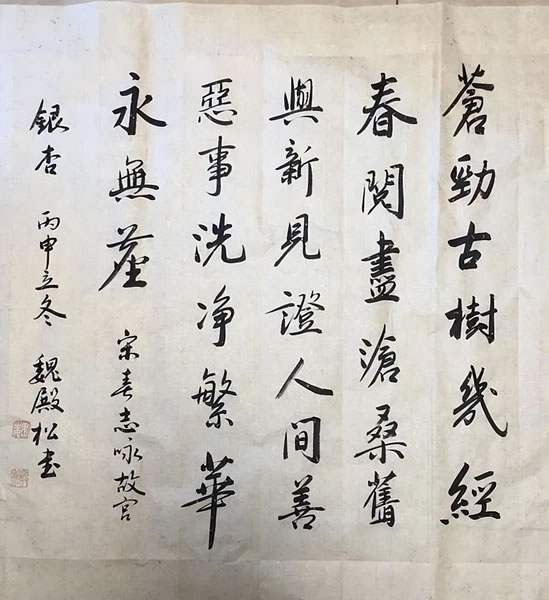 蒼勁古樹幾經
春閱盡滄桑舊
與新見證人間善
惡事洗净繁華
永無塵 宋春志咏故宫
銀杏 丙申立冬 魏殿松书